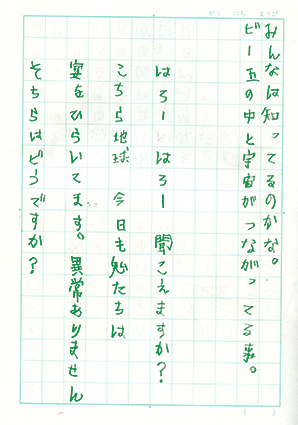 みんなは知ってるのかな。
ビー玉の中と宇宙がつながってる事。
はろー はろー 聞こえますか?
こちら地球 今日も鬼たちは
宴をひらいてます。異常ありません
そちらはどうですか?